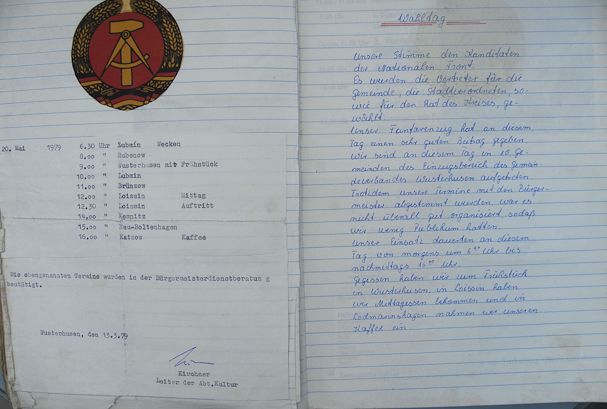 20. Mai 1979 6.30 Uhr Lubmin Wecken
8.00 " Hubenow
9.00 " Wusterhusen mit Frühstück
10.00 " Lubmin
11.00 " Brünzow
12.00 " Loissin Mittag
12.30 " Loissin Auftritt
14.00 " Kemnitz
15.00 " Neu-Boltenhagen
16.00 " Katzow Kaffee
Die obengenannten Termine wurden in der Bürgermeisterdienstberatung
bestätigt.
Wusterhusen, den 13.3.79
Kirchner
Leiter der Abt.Kultur
Wahltag
Unsere Stimme den Kandidaten
der Nationalen Front.
Es werden die Vertreter für die
Gemeinde, die Stadtverordneten, so-
wie für den Rat des Kreises, ge-
wählt.
Unser Fanfarenzug hat an diesem
Tag einen sehr guten Beitrag gegeben.
Wir sind an diesem Tag in 10 Ge-
meinden des Einzugsbereich des Gemein-
deverbandes Wusterhusen aufgetreten.
Trotzdem unsere Termine mit den Bürger-
meister abgestimmt wurden, war es
nicht überall gut organisiert, sodaß
wir wenig Publikum hatten.
Unser Einsatz dauerten an diesem
Tag von morgens um 6 Uhr bis
nachmittags Uhr.
Gegessen haben wir zum Frühstück
in Wusterhusen, in Loissin haben
wir Mittagessen bekommen und in
Rodmannshagen nahmen wir unseren
Kaffee ein.